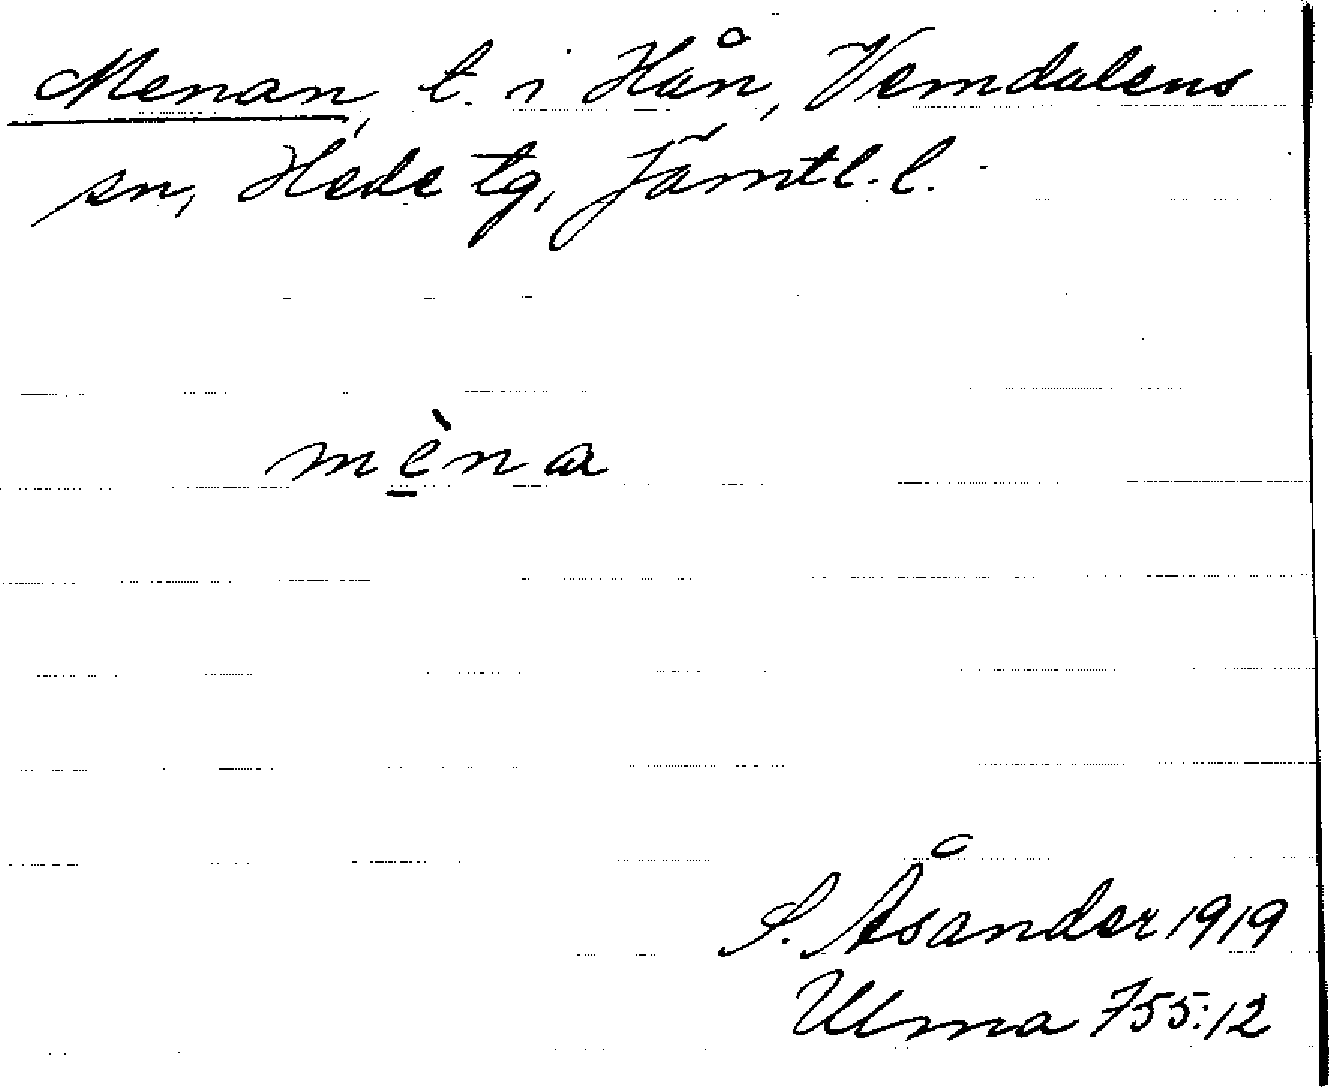 Menan, t. i Hån, Vemdalens
sn, Hede tg, Jämtl. l.
mèna
S. Åsander 1919
Ulma 755:12